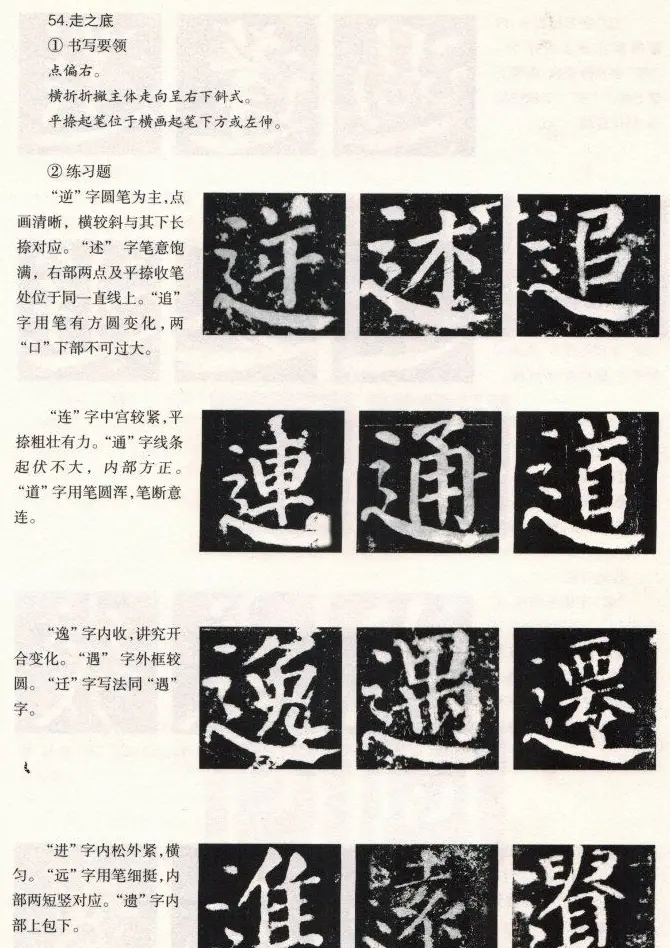 54.走之底
① 书写要领
点偏右。
横折折撇主体走向呈右下斜式。
平捺起笔位于横画起笔下方或左伸。
② 练习题
“逆”字圆笔为主,点
画清晰，横较斜与其下长
捺对应。“述” 字笔意饱
满，右部两点及平捺收笔
处位于同一直线上。“追”
字用笔有方圆变化，两
“口”下部不可过大。
逆 述 追
“连”字中宫较紧,平
捺粗壮有力。“通”字线条
起伏不大，内部方正。
“道”字用笔圆浑,笔断意
连。
連 通 道
“逸”字内收,讲究开
合变化。“遇” 字外框较
圆。“迁”字写法同“遇”
字。
逸 遇 遷
“进”字内松外紧,横
匀。“远”字用笔细挺,内
部两短竖对应。“遗”字内
部上包下。